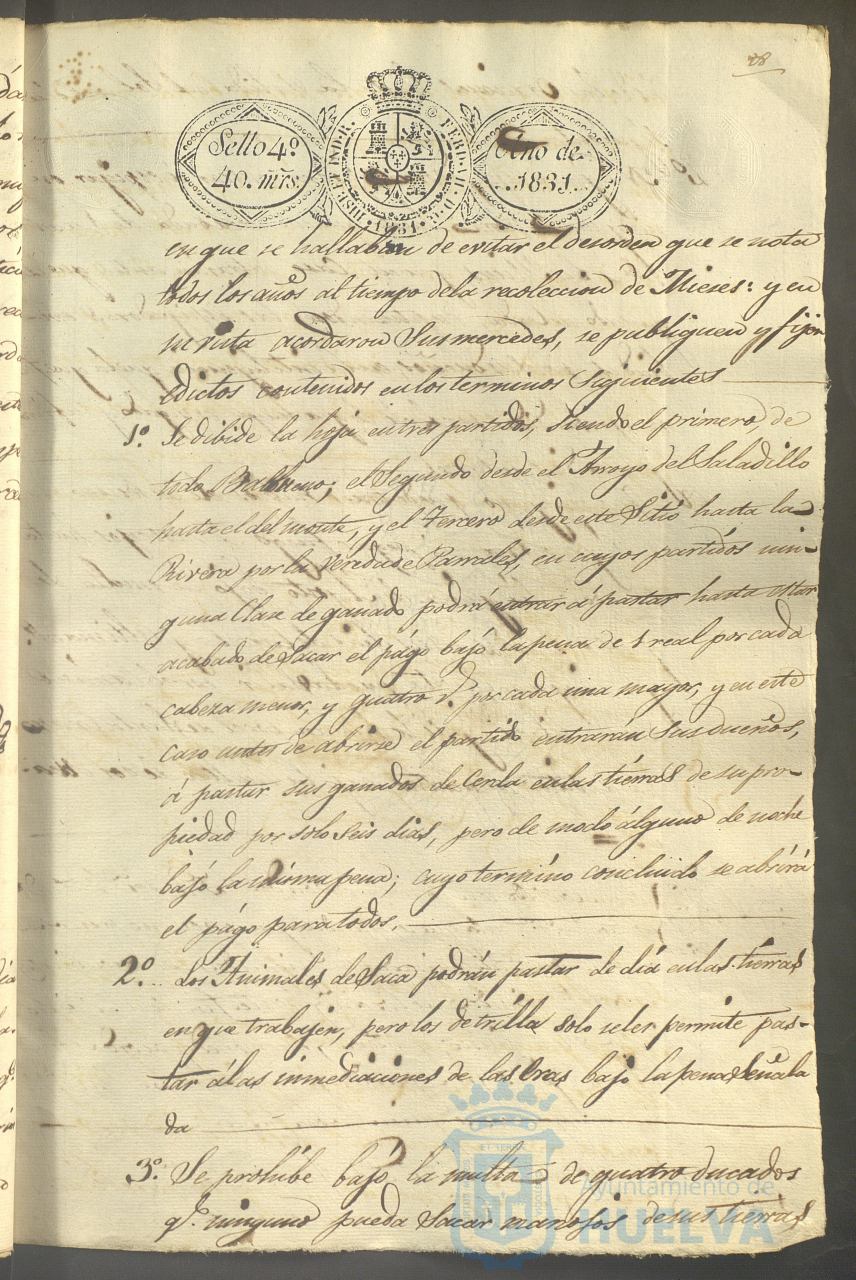 28
Sello 4º
40. mrs.
HISP. ET IND. R. FERD. VII. D. G. 1831.
Año de
1831.
en que se hallaban de evitar el desorden que se nota
todos los años al tiempo dela recoleccion de Mieses: y en
su vista acordaron Susmercedes, se publiquen y fijen
edictos contenidos enlos terminos siguientes
1º. Se dibide la hoja entres partidos, siendo el primero, de
todo ; el Segundo desde el Arroyo del Saladillo
hasta el del monte, y el Tercero desde este Sitio hasta la
Rivera por la Vereda de Parrales, en cuyos partidos nin-
guna Clase de ganado podrá entrar á pastar hasta estar
acabado de Sacar el págo bajo la pena de 1 real por cada
cabeza menor, y quatro rs. por cada una mayor, y en este
caso antes de abrirse el partido entrarán Sus dueños,
á pastar sus ganados de Cerda enlas tierras de su pro-
piedad por solo seis dias, pero de modo álguno de noche
bajo la misma pena; cuyo termino concluido se abrirá
el págo para todos.
2º. Los Animales de Saca podrán pastar de dia enlas tierras
en que trabajen, pero los de trilla solo seles permite pas-
tar álas inmediaciones de las Eras bajo la pena Señala
da
3º. Se prohibe bajo la multa de quatro ducados
q.e ninguno pueda Sacar manojos de sus tierras
Ayuntamiento de
HUELVA